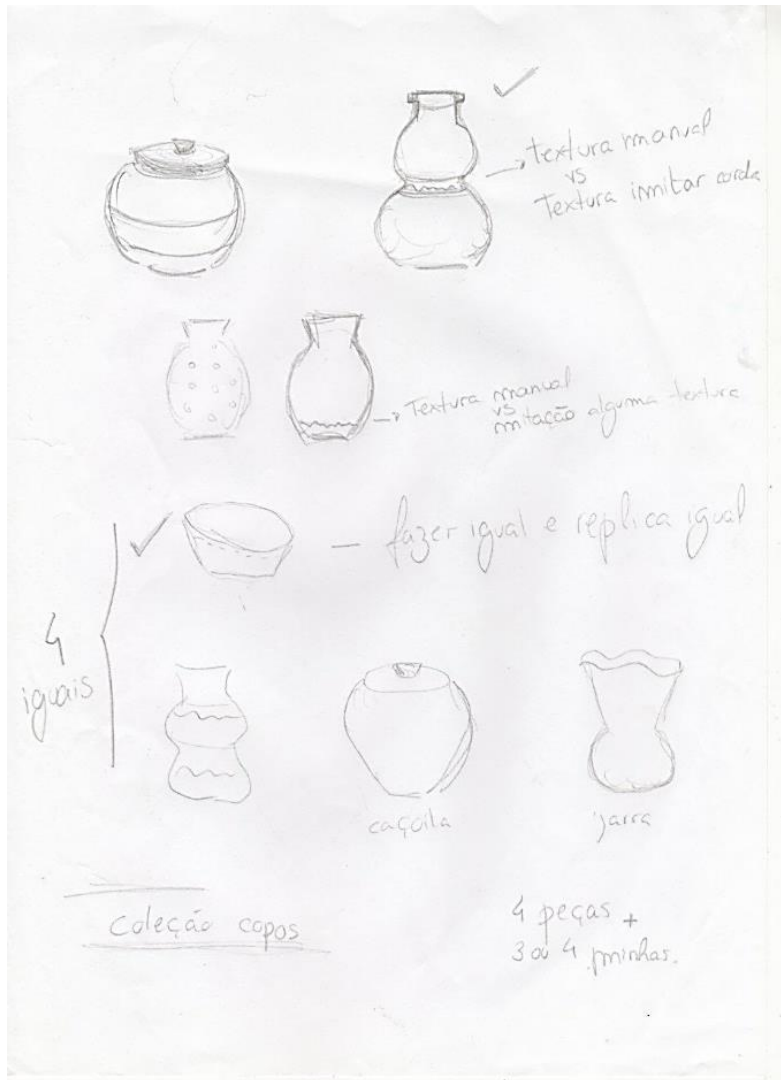 textura manual
vs
Textura imitar corda
Textura manual
vs
imitação alguma textura
fazer igual e replica igual
4
iguais
caçoila
jarra
Coleção copos
4 peças +
3 ou 4 minhas.